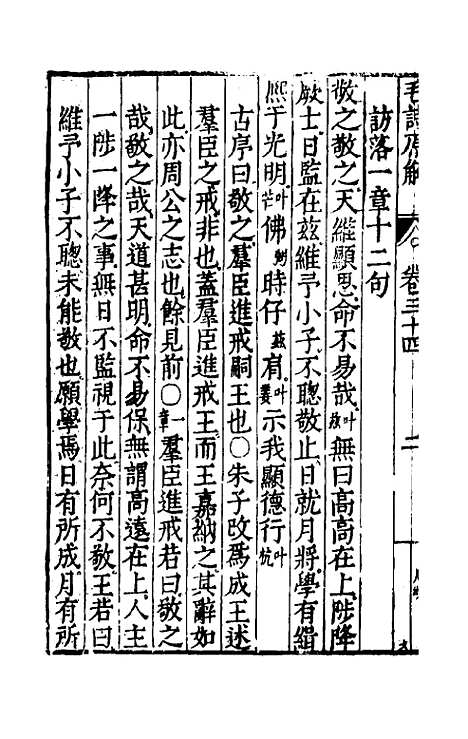 毛詩原解 卷三十四 二
訪落一章十二句
敬之敬之天維顯思命不易哉叶兹無曰高高在上陟降
厥士日監在兹維予小子不聰敬止日就月將學有緝
熙于光明叶芒佛弼時仔兹肩叶示我顯德行叶杭
古序曰敬之羣臣進戒嗣王也○朱子改爲成王述
羣臣之戒非也蓋羣臣進戒王而王嘉納之其辭如
此亦周公之志也餘見前○一章羣臣進戒若曰敬之
哉敬之哉天道甚明命不易保無謂高遠在上人主
一陟一降之事無日不監視于此奈何不敬王若曰
維予小子不聰未能敬也願學焉日有所成月有所